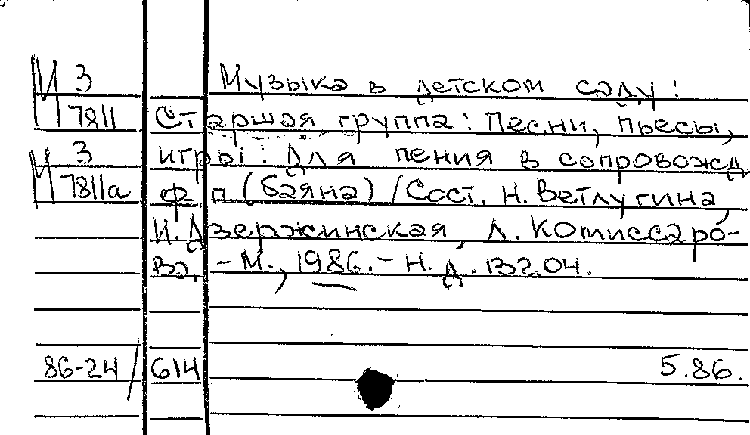 М 3 Музыка в детском саду:
М 7811 Старшая группа: Песни, пьесы,
М 3 игры: Для пения в сопровожд
М 7811а ф п (баяна) / Сост. Н. Ветлугина,
И. Дзержинская, Л. Комиссаро-
ва, - М., 1986. - Н. Д.
86-24/614 5.86.